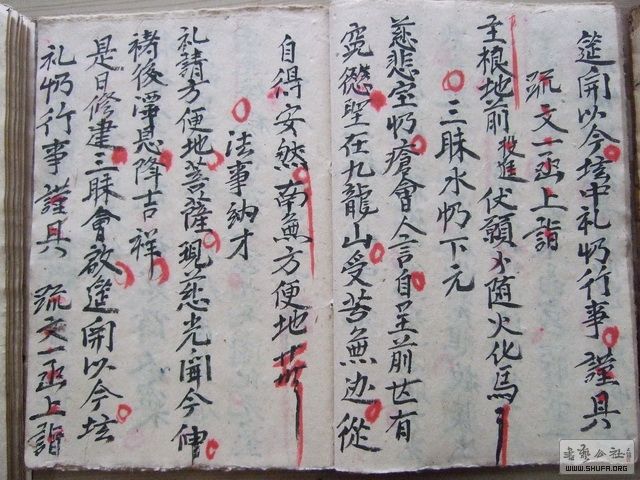 筵開以今坛中礼忏行事 謹具
疏文一函上詣
至根地前 投進 伏願 火随火化馬
三昧水忏下元
慈悲宝忏瘡會今言自呈前世有
冤愆堅在九龍山受苦無边從
自得安然南無方便地
法事納才
礼請方便地菩薩現慈光開今伸
禇後霑恩降吉祥
是日修建三昧會啟筵開以今坛
礼忏行事 謹具 疏文一函上詣
書法公社
WWW.SHUFA.ORG